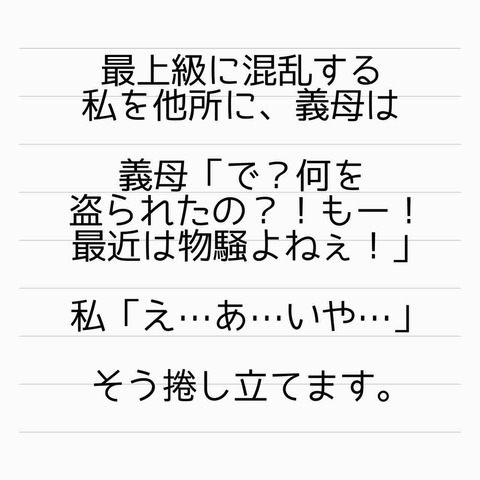 最上級に混乱する
私を他所に、義母は
義母「で？何を
盗られたの？！もー！
最近は物騒よねぇ！」
私「え…あ…いや…」
そう捲し立てます。